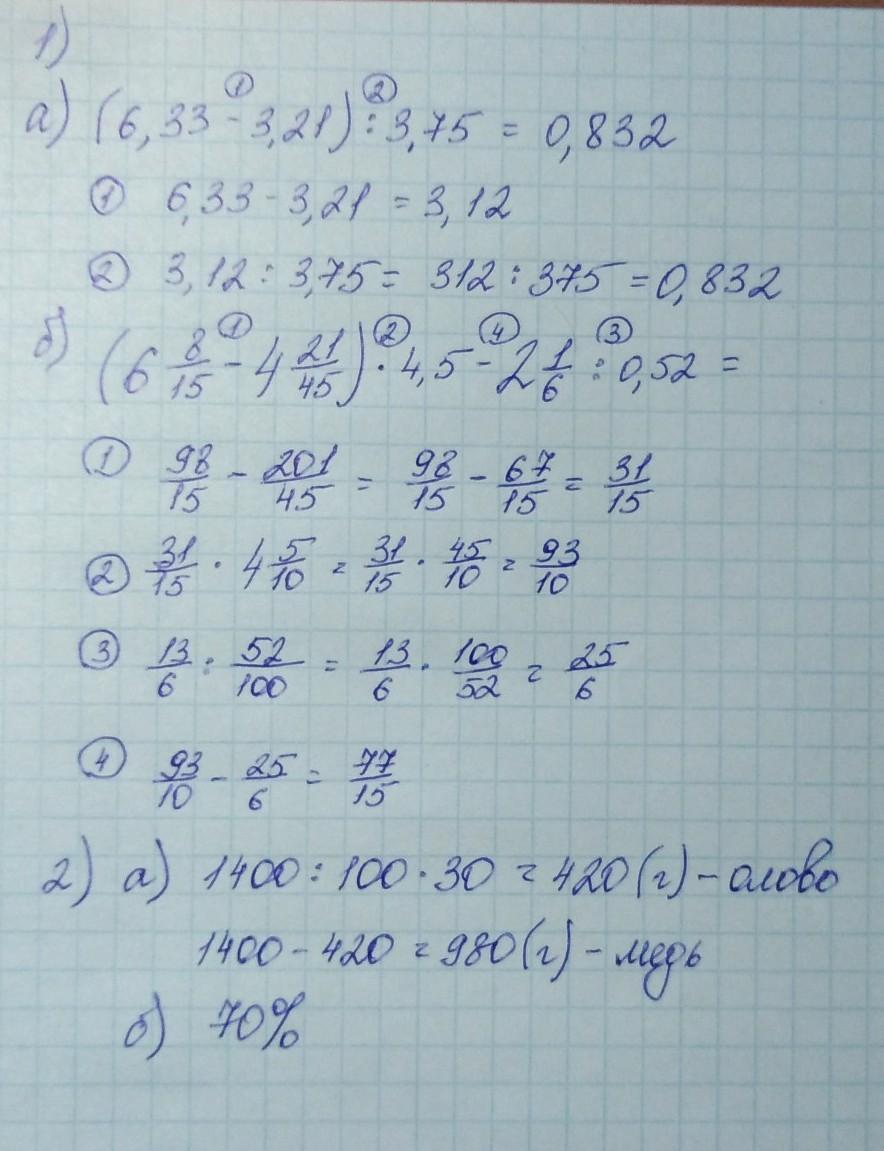 1)
а) (6,33 - 3,21) : 3,75 = 0,832
① 6,33 - 3,21 = 3,12
② 3,12 : 3,75 = 312 : 375 = 0,832
б) (6 8/15 - 4 21/45) · 4,5 - 2 1/6 : 0,52 =
① 98/15 - 201/45 = 98/15 - 67/15 = 31/15
② 31/15 · 4 5/10 = 31/15 · 45/10 = 93/10
③ 13/6 : 52/100 = 13/6 · 100/52 = 25/6
④ 93/10 - 25/6 = 77/15
2) а) 1400 : 100 · 30 = 420 (г) - олово
1400 - 420 = 980 (г) - медь
б) 70%